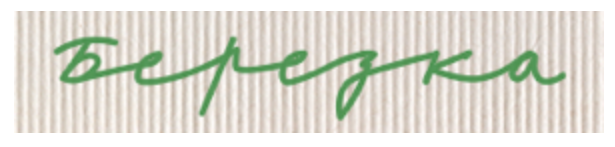 Березка